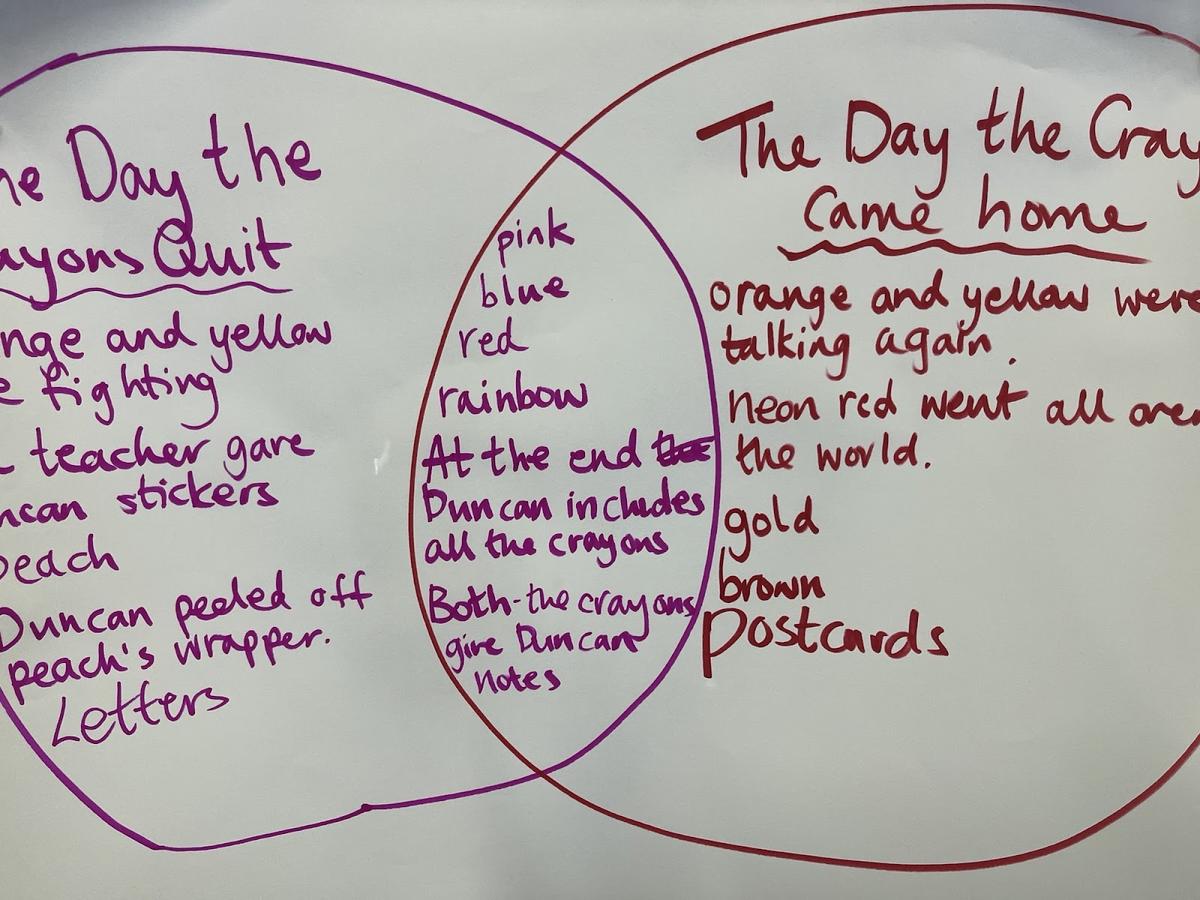 he Day the
ayons Quit
nge and yellow
e fighting
teacher gave
ncan stickers
peach
Duncan peeled off
peach's wrapper.
Letters
pink
blue
red
rainbow
At the end the
Duncan includes
all the crayons
Both-the crayons
give Duncan
notes
The Day the Cray
Came home
orange and yellow were
talking again.
neon red went all over
the world.
gold
brown
Postcards